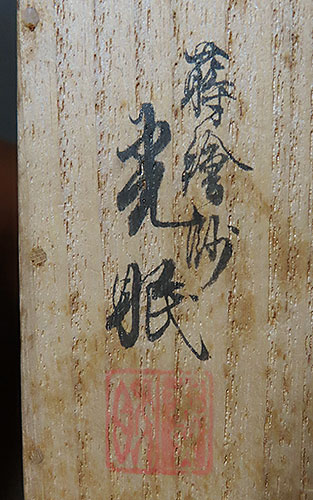 蒔繪師
光眠